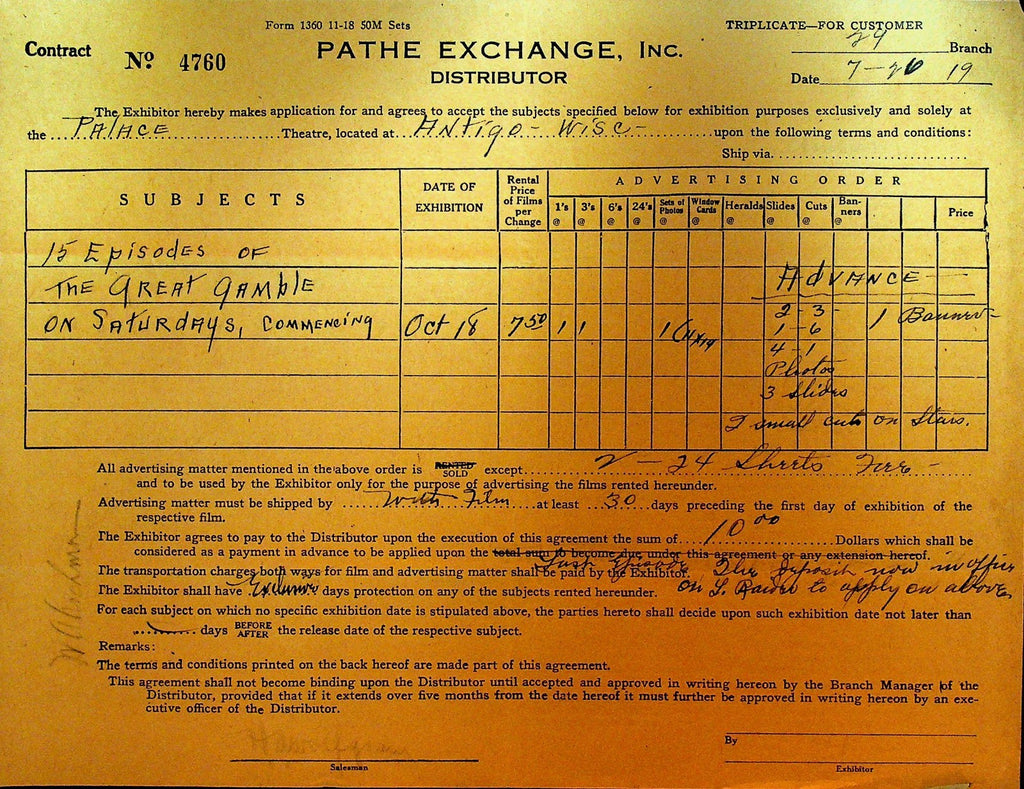 Form 1360 11-18 50M Sets
TRIPLICATE—FOR CUSTOMER
Contract Nº 4760
PATHE EXCHANGE, INC.
29 Branch
DISTRIBUTOR
Date 7-26 19
The Exhibitor hereby makes application for and agrees to accept the subjects specified below for exhibition purposes exclusively and solely at
the PALACE Theatre, located at ANTIGO - WISC - upon the following terms and conditions:
Ship via
SUBJECTS
DATE OF EXHIBITION
Rental Price of Films per Change
ADVERTISING ORDER
1's @ 3's @ 6's @ 24's @ Sets of Photos @ Window Cards @ Heralds @ Slides @ Cuts @ Banners @ Price
15 EPISODES OF
THE GREAT GAMBLE ADVANCE
ON SATURDAYS, COMMENCING Oct 18 7.50 1 1 1 (11x14 2-3- 1 Banner-
1-6
4-1
Photos
3 Slides
2 small cuts on Stars.
All advertising matter mentioned in the above order is RENTED SOLD except 2-24 Sheets Free-
and to be used by the Exhibitor only for the purpose of advertising the films rented hereunder.
Advertising matter must be shipped by With Film at least 30 days preceding the first day of exhibition of the
respective film.
The Exhibitor agrees to pay to the Distributor upon the execution of this agreement the sum of 10.00 Dollars which shall be
considered as a payment in advance to be applied upon the total sum to become due under this agreement or any extension hereof.
Last Episode The deposit now in office
The transportation charges both ways for film and advertising matter shall be paid by the Exhibitor.
on to apply on above
The Exhibitor shall have days protection on any of the subjects rented hereunder.
For each subject on which no specific exhibition date is stipulated above, the parties hereto shall decide upon such exhibition date not later than
days BEFORE AFTER the release date of the respective subject.
Remarks:
The terms and conditions printed on the back hereof are made part of this agreement.
This agreement shall not become binding upon the Distributor until accepted and approved in writing hereon by the Branch Manager of the
Distributor, provided that if it extends over five months from the date hereof it must further be approved in writing hereon by an exe-
cutive officer of the Distributor.
By
Salesman
Exhibitor